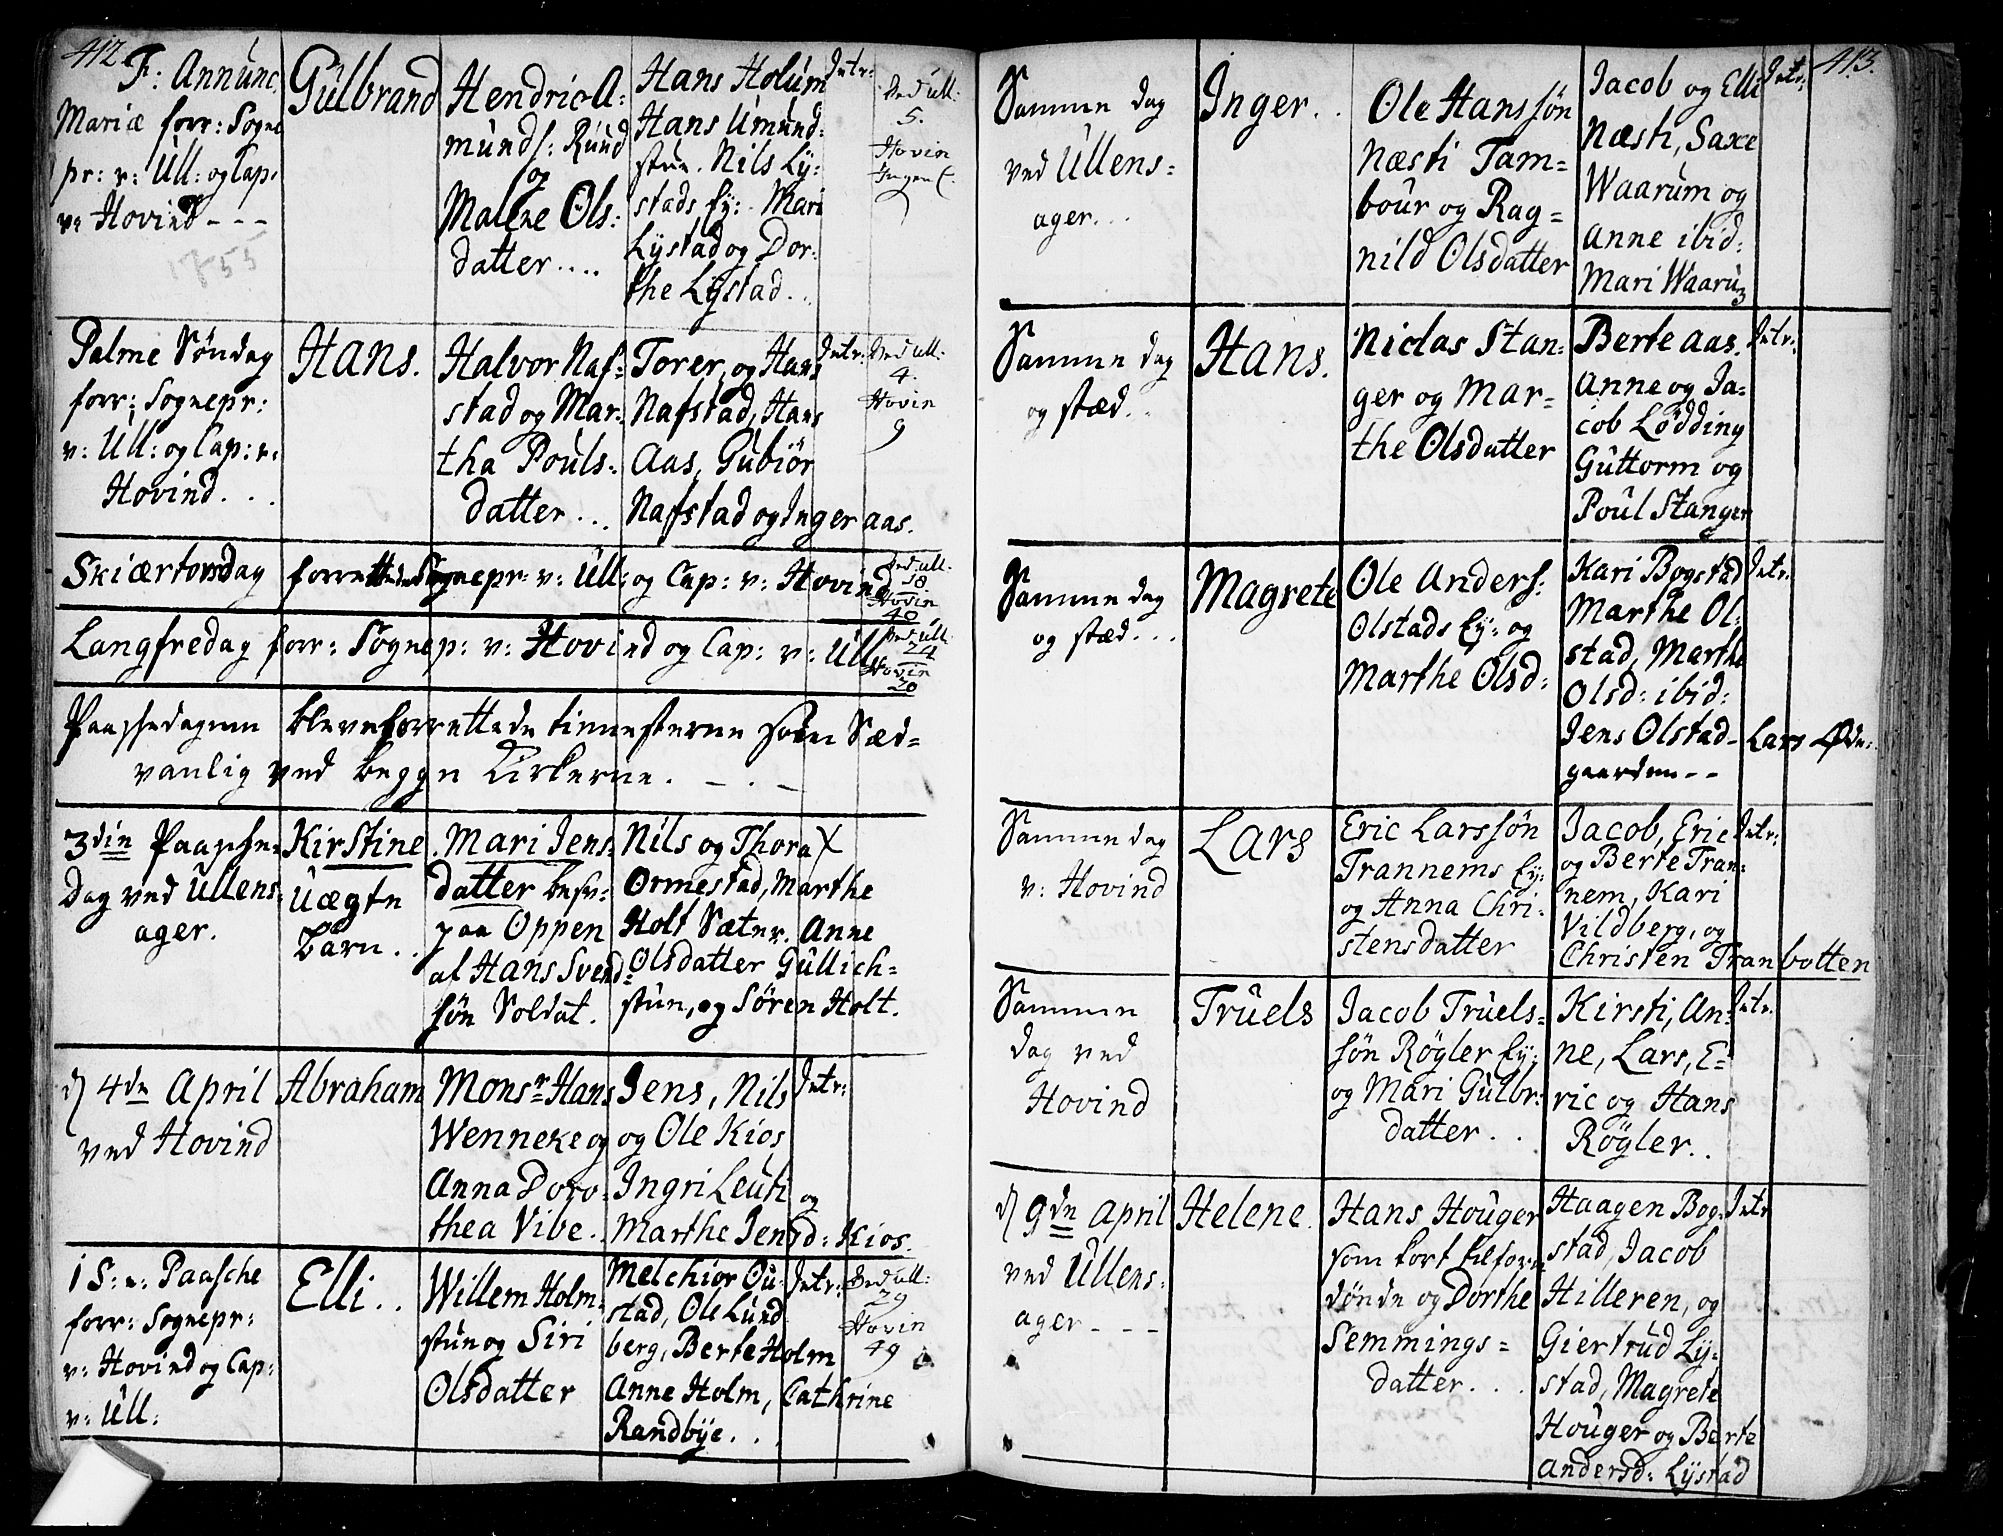 412.
F: Annunc.
Mariæ forr: Sogne
pr: v: Ull: og Cap:
v: Hovind - - -
1755
Gülbrand
Hendric A:
münds: Rüud
og
Malene Ols:
datter....
Hans Holüm
Hans Ümünd:
stuen. Nils Ly:
stads Ey: Mari
Lÿstad og Dor:
the Lÿstad..
Intr:
Ved Ull:
5.
Hovin
Ingen
Palme Söndag
forr: Sognepr:
v: Ull: og Cap: v:
Hovind...
Hans.
Halvor Naf:
stad og Mar:
tha Pouls:
datter...
Torer, og Hans
Nafstad, Hans
Aas, Gübiör
Nafstad og Inger aas.
Intr:
Ved Ull:
4.
Hovin
9
Skiærtorsdag forrettede Sognepr: v: Ull: og Cap: v: Hovind
Ved Ull:
18
Hovin
40
Langfredag forr: Sognep: v: Hovind og Cap: v: Ull:
Ved Ull:
24
Hovin
20
Paaschedagene bleve forrettede tienesterne som Sæd=
vanlig ved begge Kirkerne. - . -
3die Paasche=
Dag ved Ullens=
ager.
Kirstine
Uægte
Barn..
Mari Jens:
datter
paa Oppen
af Hans Svend:
søn Soldat.
Nils og Thora X
Ormestad, Marthe
Holt Sæter. Anne
Olsdatter Güllich=
stuen, og Sören Holt.
d 4de April
ved Hovind
Abraham
Monsr Hans
Wenneke og
Anna Doro:
thea Vibe.
Jens, Nils
og Ole Kios
Ingri Leuti og
Marthe Jensd: Kios.
Intr:
1 S: e: Paasche
forr: Sognepr:
v: Hovind og Cap:
v: Ull:
Elli..
Willem Holm:
stuen og Siri
Olsdatter
Melchior Ou:
stad, Ole Lund
berg, Berte Holm
Anne Holm, Cathrine
Randbÿe...
Intr:
Ved Ull:
29
Hovin
49
413.
Samme dag
ved Üllens:
ager...
Inger..
Ole Hanssön
Næsti Tam=
bour og Rag=
nild Olsdatter
Jacob og Elli
Næsti, Saxe
Waarum og
Anne ibid:
Mari Waarum
Intr:
Samme dag
og stæd..
Hans.
Niclas Stan:
ger og Mar=
the Olsdatter
Berte Aas.
Anne og Ja=
cob Lödding
Guttorm og
Poul Stanger
Intr:
Samme dag
og stæd...
Magrete
Ole Anders:
Olstads Ey: og
Marthe Olsd:
Kari Bogstad
Marthe Ol:
stad, Marthe
Olsd: ibid:
Jens Olstad - Lars Øde:
gaarden - -
Intr:
Samme dag
v: Hovind
Lars
Eric Larssön
Trannems Ey:
og Anna Chri:
stensdatter
Jacob, Eric
og Berte Tran:
nem, Kari
Vildberg, og
Christen Tranbotten
Intr:
Samme
dag ved
Hovind
Trüels
Jacob Trüels=
søn Rögler Ey:
og Mari Gülbr:
datter..
Kirsti, An:
ne, Lars, E=
ric og Hans
Rögler..
Intr:
d 9de April
ved Ullens:
ager - - -
Helene.
Hans Houger
som kort tilforn
döde og Dorthe
Semmings=
datter...
Haagen Bog:
stad, Jacob
Hilleren, og
Giertrud Ly:
stad, Magrete
Houger og Berte
Andersd: Lÿstad
Intr